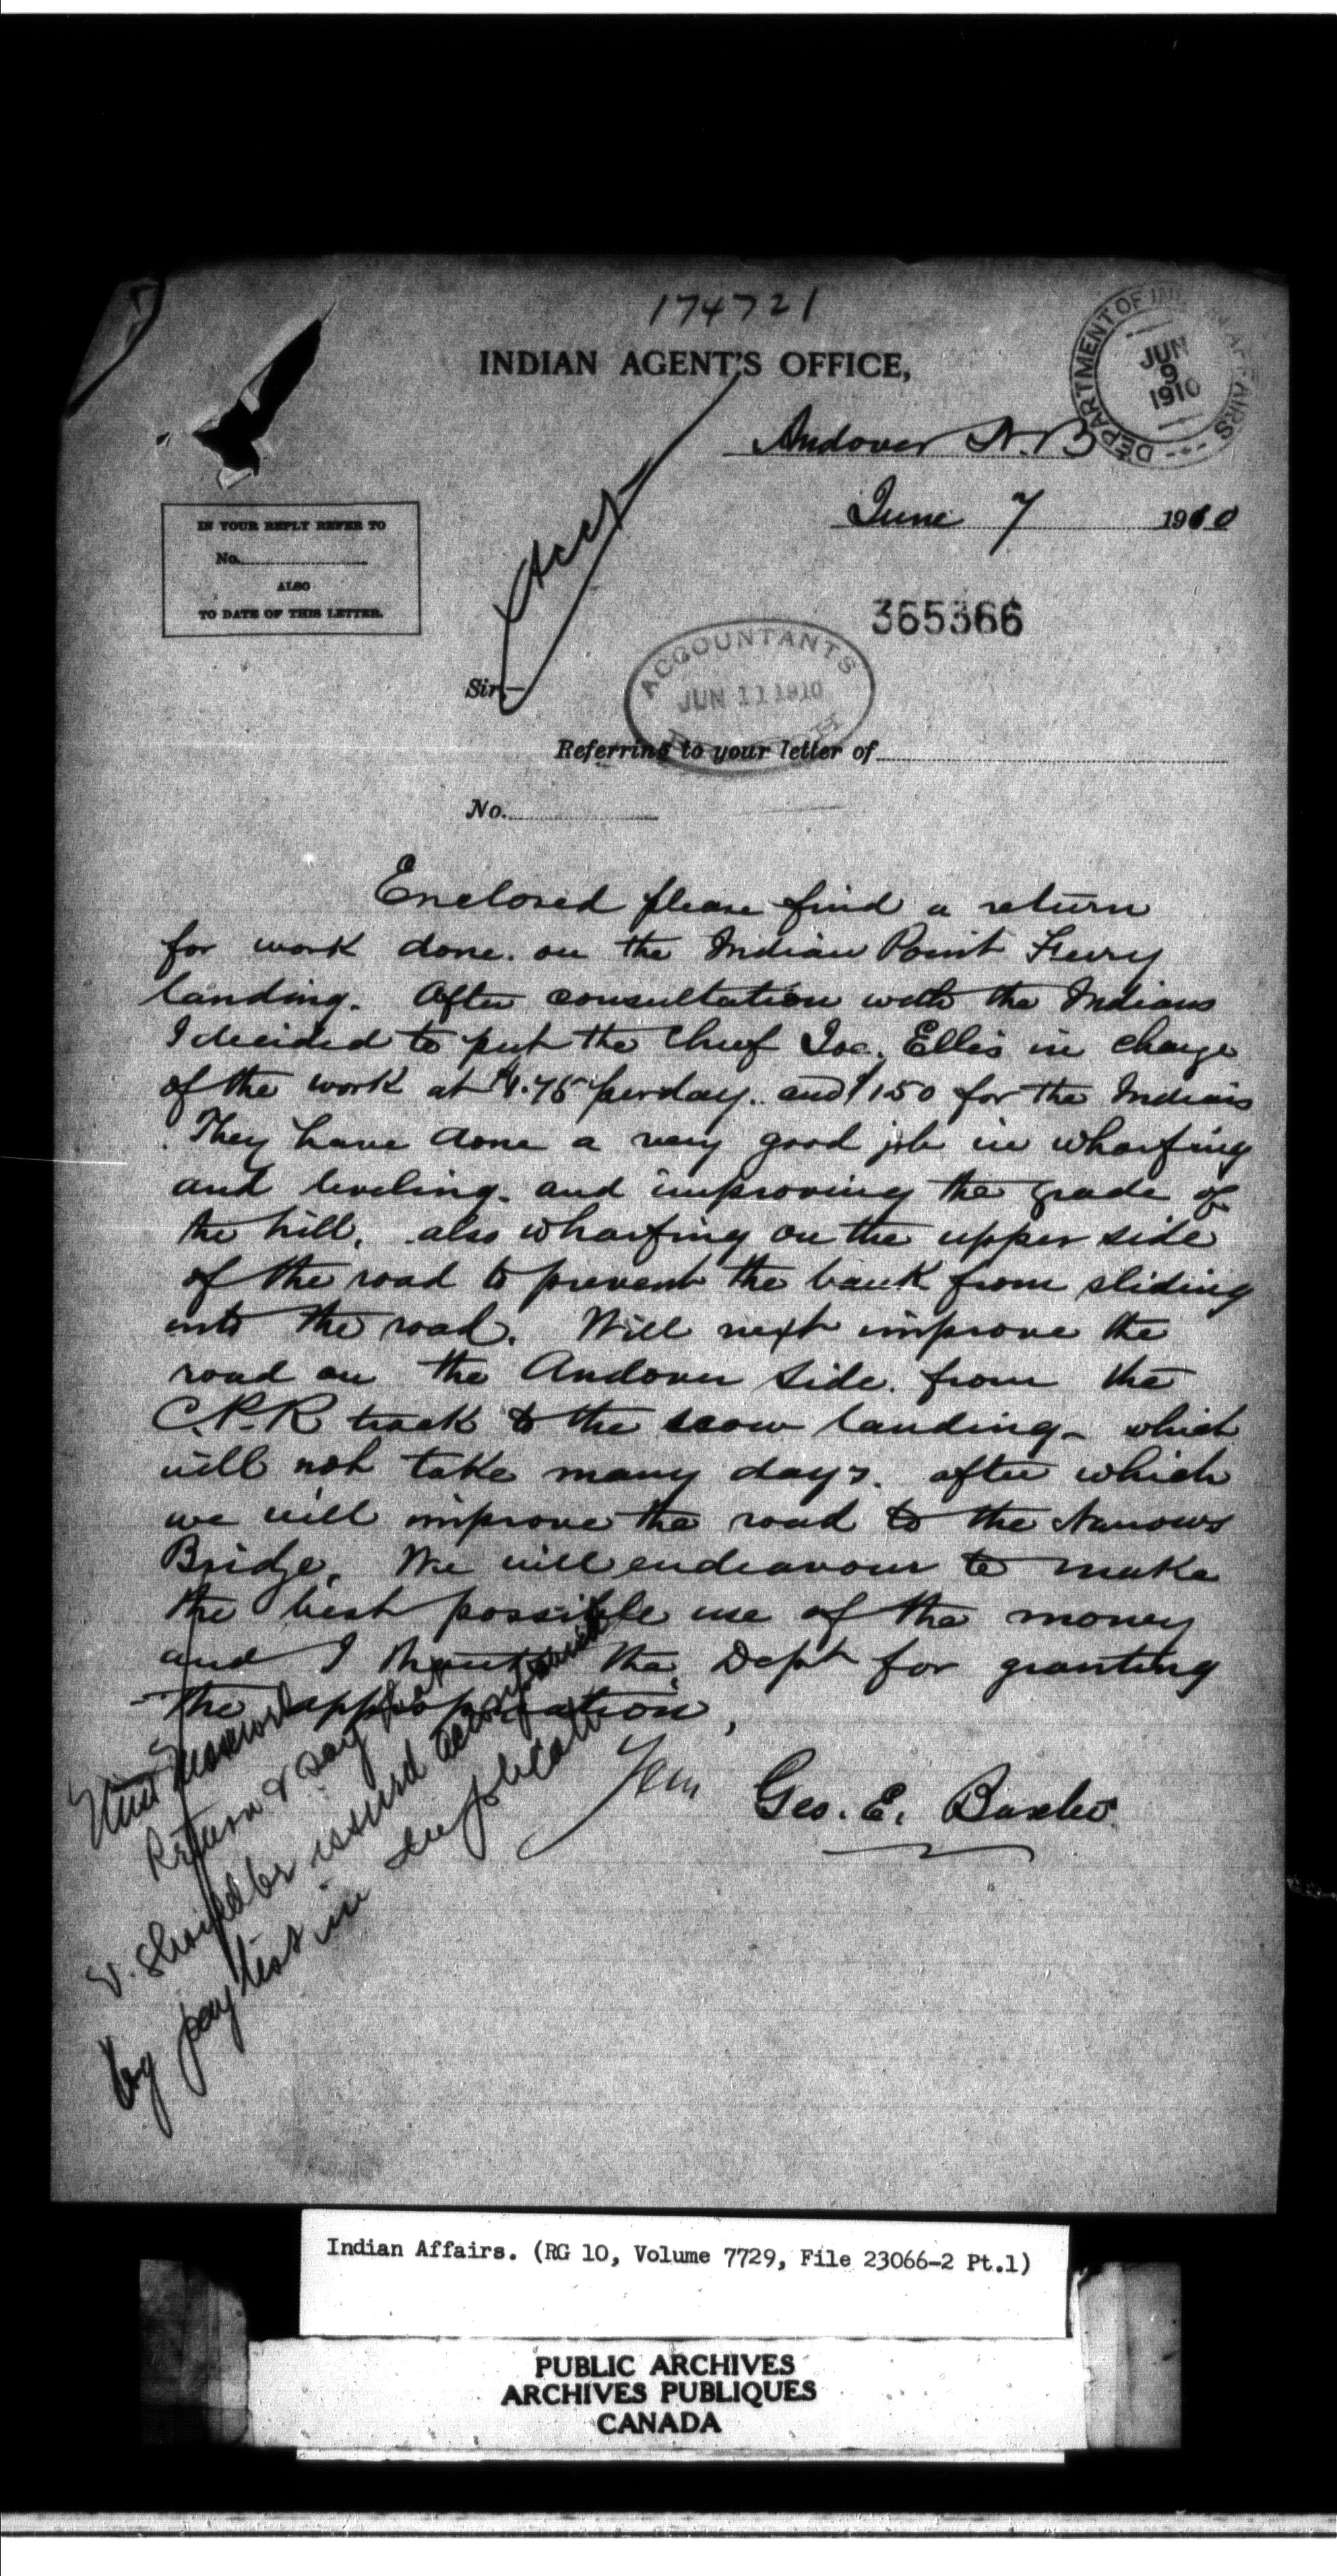 174721
INDIAN AGENT'S OFFICE,
DEPARTMENT OF INDIAN AFFAIRS
JUN
9
1910
Andover N.B
June 7 1910
IN YOUR REPLY REFER TO
No.
ALSO
TO DATE OF THIS LETTER.
Acct
365366
ACCOUNTANTS
JUN 11 1910
Sir,—
Referring to your letter of
No.
Enclosed please find a return
for work done. on the Indian Point Ferry
landing. After consultation with the Indians
I decided to put the Chief Joe. Ellis in charge
of the work at $1.75 per day. and $1.50 for the Indians
They have done a very good job in wharfing
and leveling. and improving the grade of
the hill. also wharfing on the upper side
of the road to prevent the bank from sliding
into the road. Will next improve the
road on the Andover side. from the
C.P.R track to the scow landing - which
will not take many days. after which
we will improve the road to the Narrows
Bridge. We will endeavour to make
the best possible use of the money
and I thank the Dept for granting
the appropriation,
Geo. E. Baxter
Return & say that
v. should be issued accompanied
by pay list in duplicate
Indian Affairs. (RG 10, Volume 7729, File 23066-2 Pt.1)
PUBLIC ARCHIVES
ARCHIVES PUBLIQUES
CANADA